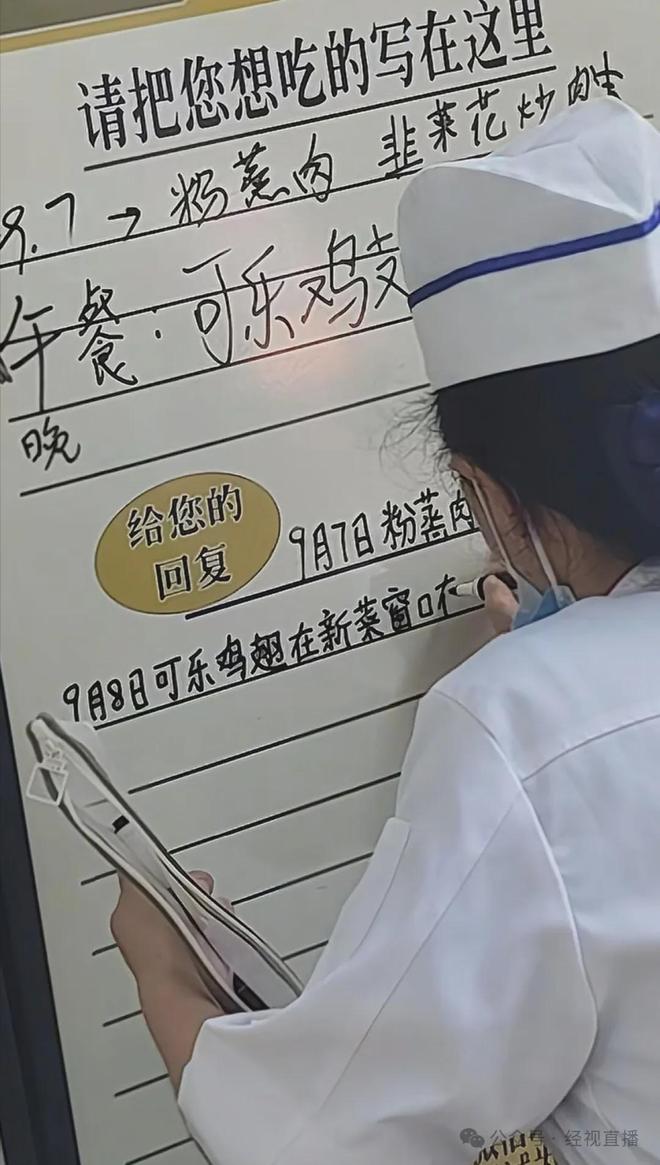 请把您想吃的写在这里
9.7→粉蒸肉 韭菜花炒
午餐:可乐鸡
晚
给您的
回复
9月7日粉蒸肉
9月8日可乐鸡翅在新菜窗口
公众号·经视直播